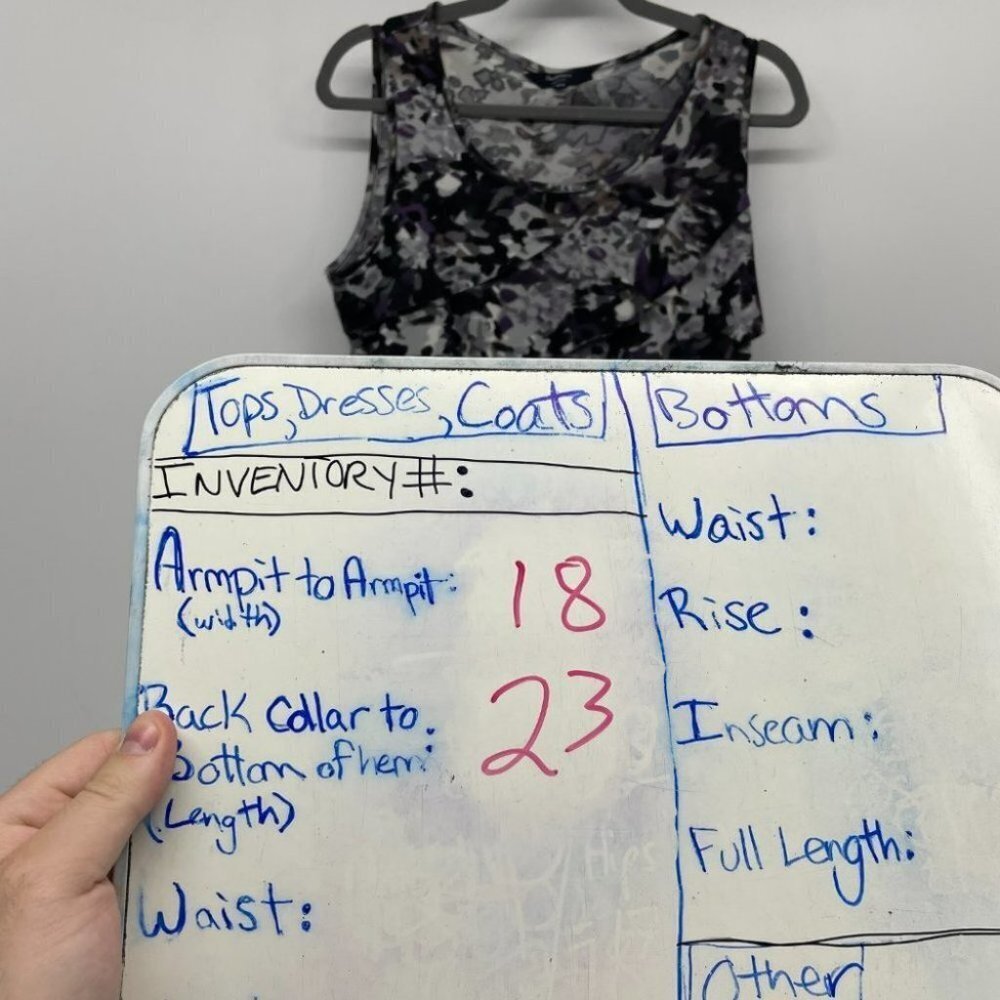 Tops, Dresses, Coats
INVENTORY #:
Armpit to Armpit: 18
(width)
Back Collar to
Bottom of hem: 23
(Length)
Waist:
Bottoms
Waist:
Rise:
Inseam:
Full Length:
Other